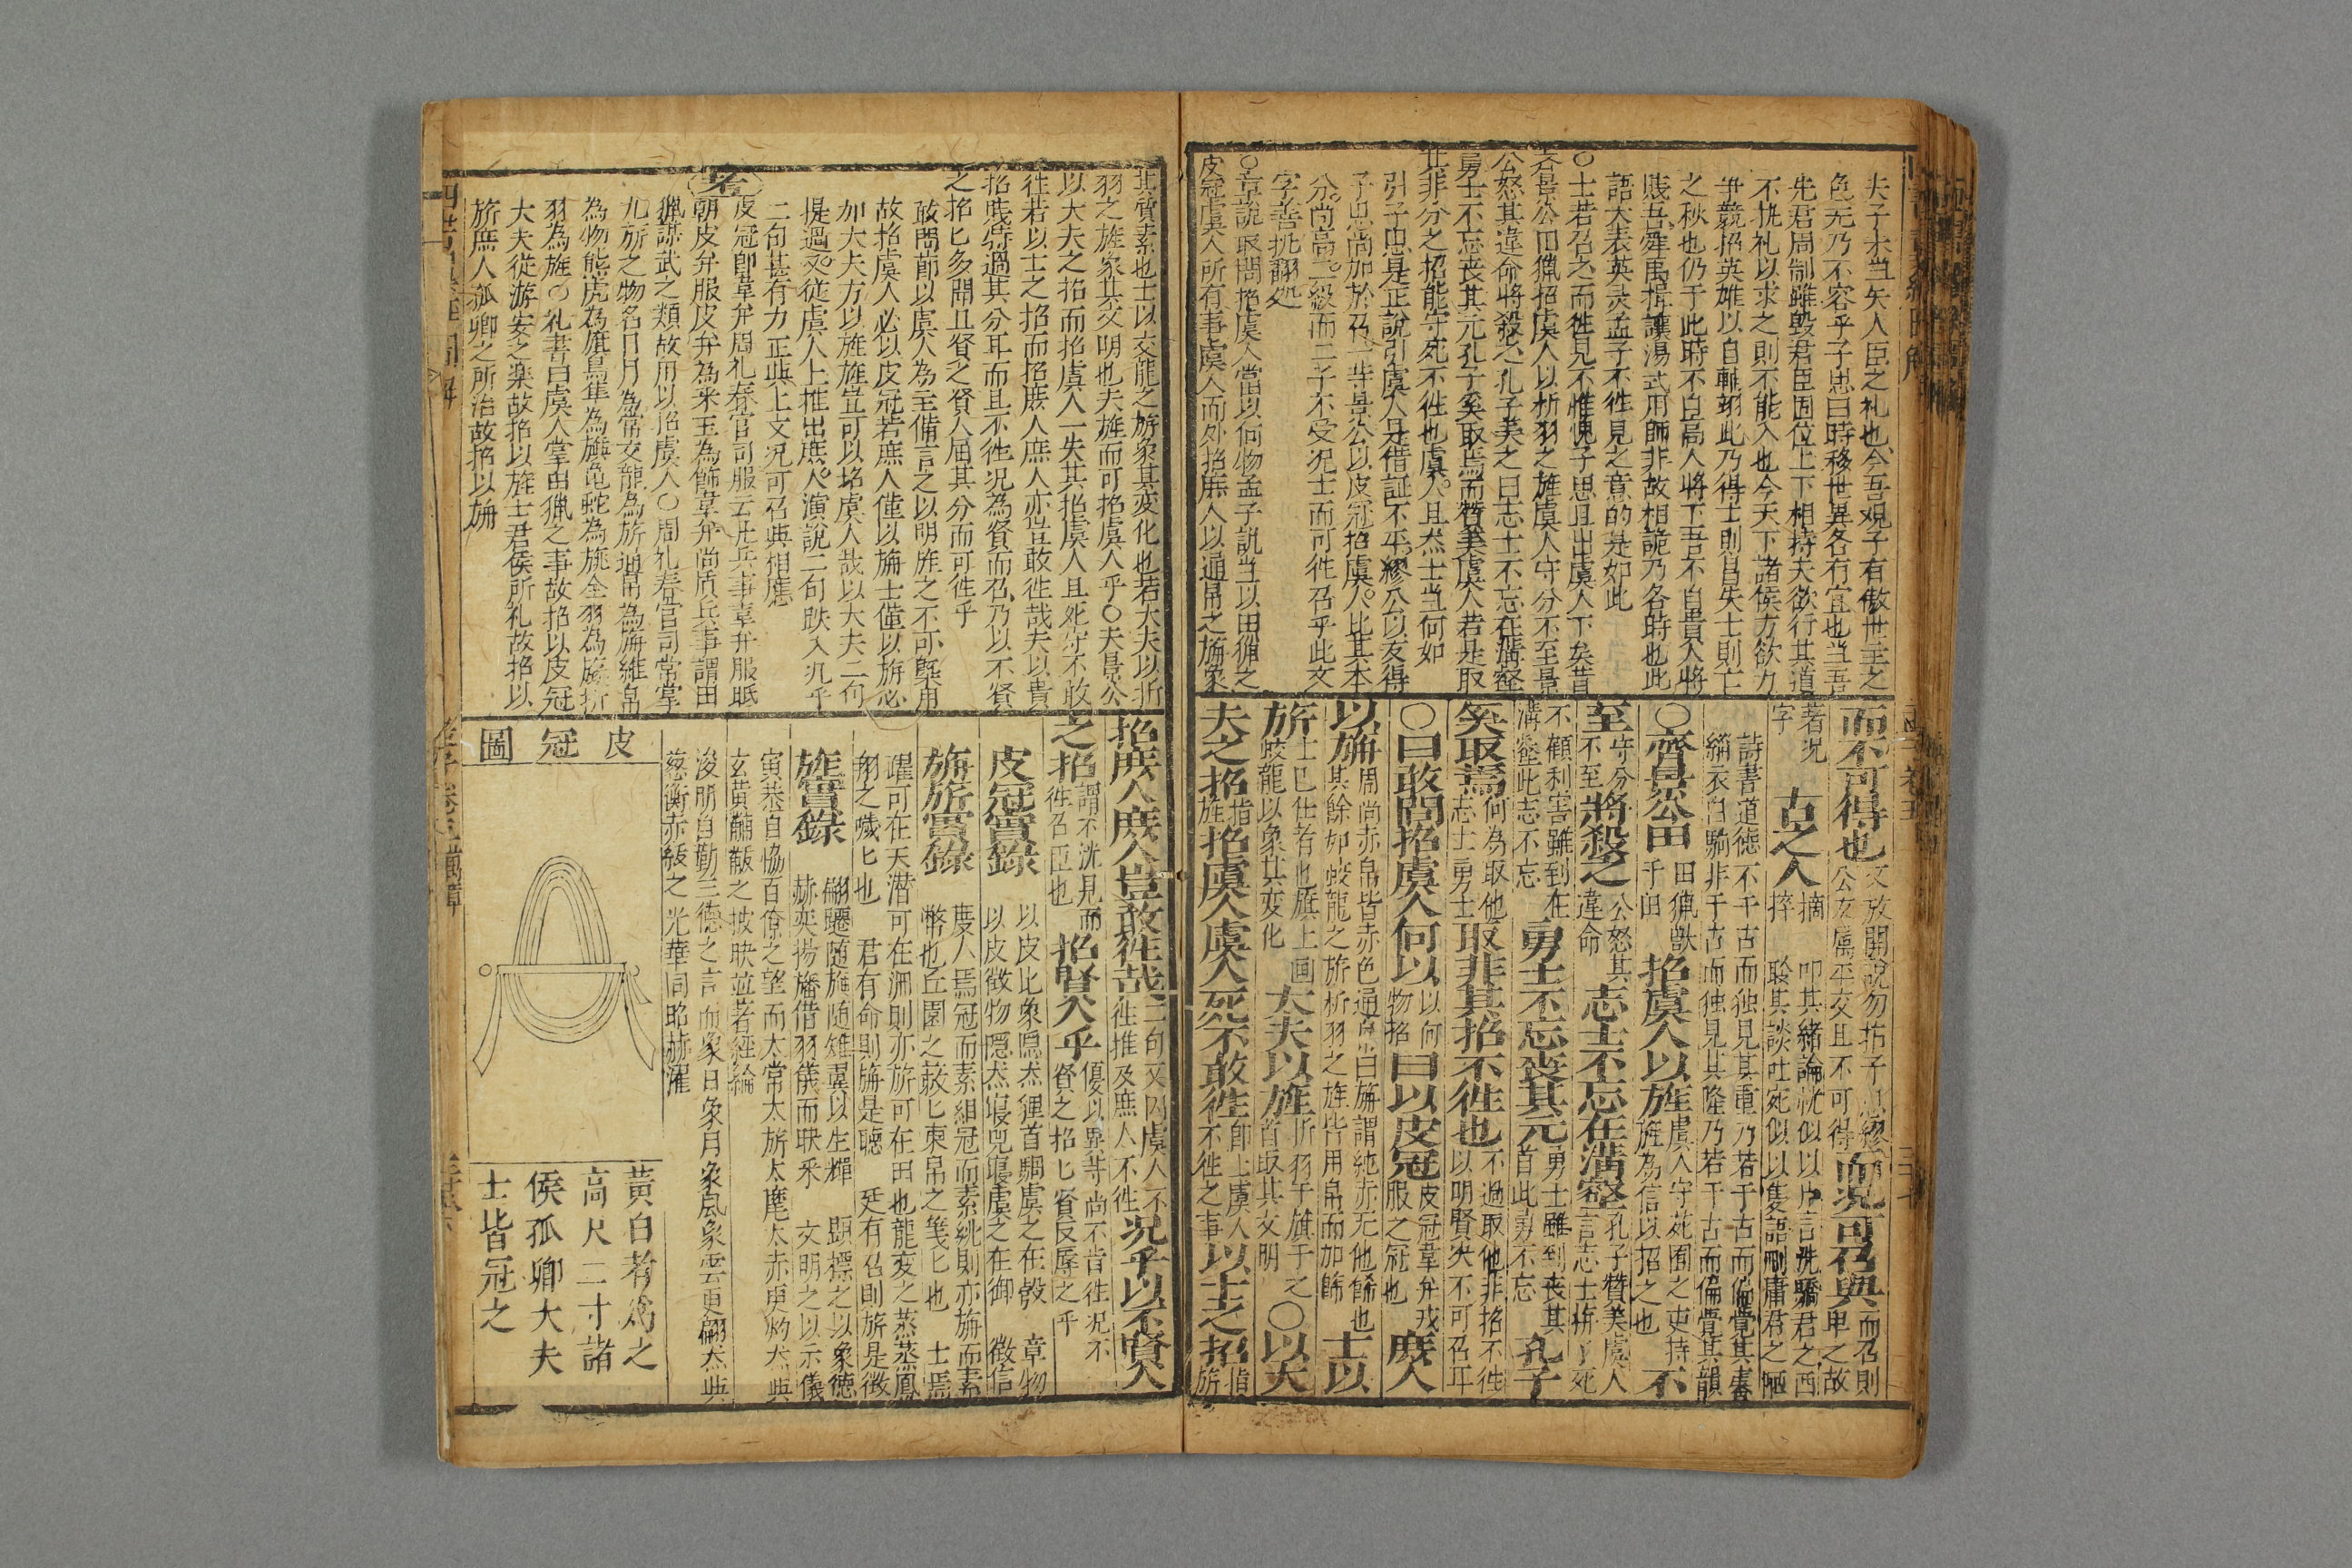 夫子未当矢人臣之礼也今吾観子有傲世主之
色无乃不容乎子思曰時移世異各有宜也当吾
先君周制雖毀君臣固位上下相持夫欲行其道
不执礼以求之則不能入也今天下諸侯方欲力
争競招英雄以自輔翊此乃得士則昌失士則亡
之秋也仍于此時不自高人將下吾不自貴人將
賎吾舜禹揖讓湯武用師非故相詭乃各時也此
語大表英灵孟子不徃見之意的是如此
○士若召之而徃見不惟愧子思且出虞人下矣昔
者景公田猟招虞人以析羽之旌虞人守分不至景
公怒其違命將殺之孔子美之曰志士不忘在溝壑
勇士不忘丧其元孔子奚取焉而賛美虞人若是取
其非分之招能守死不徃也虞人且然士当何如
引子思是正說引虞人是借証不平繆公以友得
子思尚加於召一等景公以皮冠招虞人比其本
分尚高二級而二子不受况士而可徃召乎此文
字善挑翻処
○章說取問招虞人當以何物孟子說当以田猟之
皮冠虞人所有事虞人而外招庶人以通帛之旃象
而不可得也 文放開說勿拈子思繆
公友属平交且不可得 而况可召與 而召則
卑之故
著况
字 古之人 摘叩其緒論恍似以片言洗驕君之西
詩書道德不干古而独見其重乃若于古而偏覚其春
編衣白駒非于古而独見其隆乃若于古而偏覚其韻
○齊景公田 田猟獣
于田 招虞人以旌 虞人守苑囿之吏持
旌為信以招之也 不
至 守分
不至 將殺之 公怒其
違命 志士不忘在溝壑 孔子賛美虞人
言志士拚了死
不顧利害雖到在
溝壑此志不忘 勇士不忘喪其元 勇士雖到丧其
首此勇不忘 孔子
奚取焉 何為取他
志士勇士 取非其招不徃也 不過取他非招不徃
以明賢决不可召耳
○曰敢問招虞人何以 以何
物招 曰以皮冠 皮冠韋弁戎
服之冠也 庶人
以旃 周尚赤帛皆赤色通帛曰旃謂純赤无他餙也
其餘如蛟龍之旂析羽之旌皆用帛而加飾 士以
旂 士已仕者也旗上画
蛟龍以象其変化 大夫以旌 折羽于旗干之
首取其文明 ○以大
夫之招 指
旌 招虞人虞人死不敢徃 即上虞人
不徃之事 以士之招 指
旂
其質素也士以交龍之旂象其変化也若大夫以折
羽之旌象其文明也夫旌而可招虞人乎○夫景公
以大夫之招而招虞人一失其招虞人且死守不敢
徃若以士之招而招庶人庶人亦豈敢徃哉夫以貴
招賎特過其分耳而且不徃况為賢而召乃以不賢
之招匕多聞且賢之賢人屈其分而可徃乎
敢問節以虞人為主備言之以明旌之不可槩用
故招虞人必以皮冠若庶人僅以旃士僅以旂必
加大夫方以旌旌豈可以招虞人哉以大夫二句
提過文従虞人上推出庶人演說二句跌入况乎
二句甚有力正與上文况可召與相應
考
皮冠卽韋弁周礼春官司服云凡兵事韋弁服眡
朝皮弁服皮弁為釆玉為飾韋弁尚质兵事謂田
猟謀武之類故用以招虞人○周礼春官司常掌
九旂之物名日月為常交龍為旂通帛為旃維帛
為物熊虎為旗鳥隼為旟亀蛇為旐全羽為旞折
羽為旌○礼書曰虞人掌田猟之事故招以皮冠
大夫從游安之楽故招以旌士君侯所礼故招以
旂庶人孤卿之所治故招以旃
招庶人庶人豈敢徃哉 二句又因虞人不
徃推及庶人不徃 况乎以不賢人
之招 謂不洗見而
徃召臣也 招賢人乎 優以異等尚不肯徃况不
賢之招匕賢反辱之乎
皮冠實錄 以皮比象隠然狸首騶虞之在彀 章物
以皮徵物隠然堰兕殪虞之在御 徵信
旃旂實錄 庶人焉冠而素組冠而素紕則亦旃而素
幣也丘園之敦匕束帛之笺匕也 士焉
躍可在天潜可在淵則亦旂可在田也龍変之蒸蒸鳳
翔之噦匕也 君有命則旃是聴 廷有召則旂是徴
旌實錄 翩翾随旌随雉翼以生輝 顕標之以象德
赫奕揚旛借羽儀而昳釆 文明之以示儀
寅恭自恊百僚之望而太常太旂太麾太赤更灼然典
玄黄黼黻之披映並著經綸
浚明自勤三德之言而象日象月象風象雲更翩然典
葱衡赤紱之光華同昭赫濯
皮冠圖
黃白者為之
高尺二寸諸
侯孤卿大夫
士皆冠之